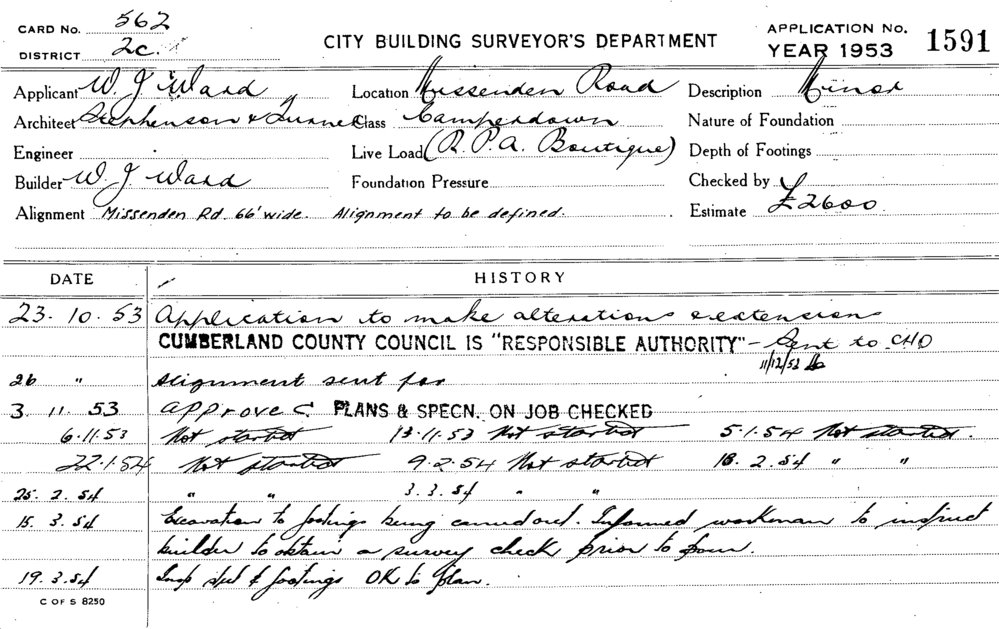 CARD No. 562
DISTRICT 2c.
CITY BUILDING SURVEYOR'S DEPARTMENT
APPLICATION No.
YEAR 1953 1591
Applicant W. J Ward Location Missenden Road Description Minor
Architect Stephenson & Turner Class Camperdown Nature of Foundation
Engineer Live Load (R. P. A. Boutique) Depth of Footings
Builder W. J. Ward Foundation Pressure Checked by
Alignment Missenden Rd. 66' wide. Alignment to be defined. Estimate £2600
DATE HISTORY
23. 10. 53 Application to make alterations & extension
CUMBERLAND COUNTY COUNCIL IS "RESPONSIBLE AUTHORITY" - Sent to CHO
26 " Alignment sent for
3. 11. 53 Approved PLANS & SPECN. ON JOB CHECKED
6.11.53 Not started 13.11.53 Not started 5.1.54 Not started.
22.1.54 Not started 9.2.54 Not started 18.2.54 " "
25.2.54 " " 3.3.54 " "
15.3.54 Excavation to footings being carried out. Informed workman to instruct
builder to obtain a survey check prior to pour.
19.3.54 Insp steel & footings OK to plan.
C OF S 8250